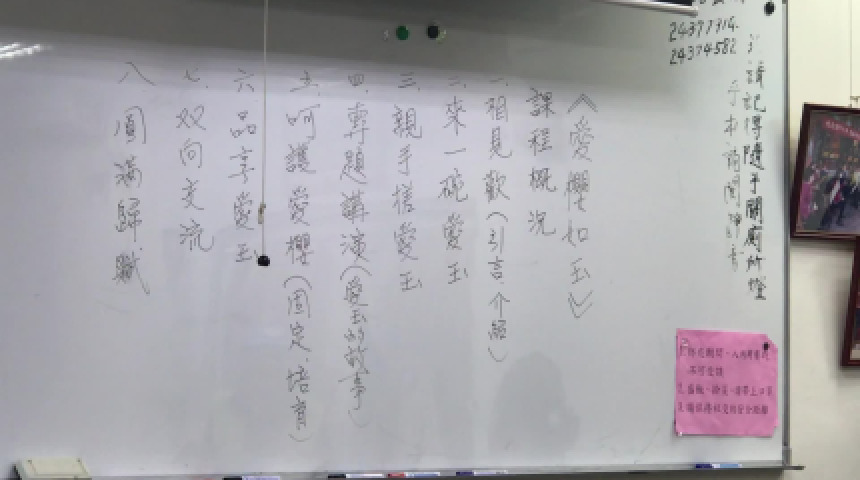 24377914
24374582
請記得隨手關廁所燈
《愛櫻如玉》
課程概況
一.相見歡(引言.介紹)
二.來一碗愛玉
三.親手搓愛玉
四.專題講演(愛玉的故事)
五.呵護愛櫻(固定.培育)
六.品享愛玉
七.双向交流
八.圓滿歸賦